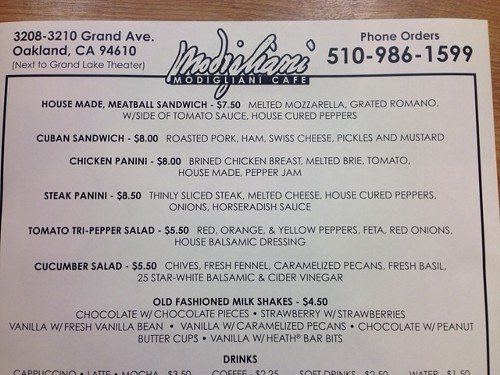 3208-3210 Grand Ave.
Oakland, CA 94610
(Next to Grand Lake Theater)
Modigliani
MODIGLIANI CAFE
Phone Orders
510-986-1599
HOUSE MADE, MEATBALL SANDWICH - $7.50 MELTED MOZZARELLA, GRATED ROMANO,
W/SIDE OF TOMATO SAUCE, HOUSE CURED PEPPERS
CUBAN SANDWICH - $8.00 ROASTED PORK, HAM, SWISS CHEESE, PICKLES AND MUSTARD
CHICKEN PANINI - $8.00 BRINED CHICKEN BREAST, MELTED BRIE, TOMATO,
HOUSE MADE, PEPPER JAM
STEAK PANINI - $8.50 THINLY SLICED STEAK, MELTED CHEESE, HOUSE CURED PEPPERS,
ONIONS, HORSERADISH SAUCE
TOMATO TRI-PEPPER SALAD - $5.50 RED, ORANGE, & YELLOW PEPPERS, FETA, RED ONIONS,
HOUSE BALSAMIC DRESSING
CUCUMBER SALAD - $5.50 CHIVES, FRESH FENNEL, CARAMELIZED PECANS, FRESH BASIL,
25 STAR-WHITE BALSAMIC & CIDER VINEGAR
OLD FASHIONED MILK SHAKES - $4.50
CHOCOLATE W/ CHOCOLATE PIECES • STRAWBERRY W/ STRAWBERRIES
VANILLA W/ FRESH VANILLA BEAN • VANILLA W/ CARAMELIZED PECANS • CHOCOLATE W/ PEANUT
BUTTER CUPS • VANILLA W/ HEATH® BAR BITS
DRINKS
CAPPUCCINO • LATTE • MOCHA - $3.50 COFFEE - $2.25 SOFT DRINKS - $2.50 WATER - $1.50